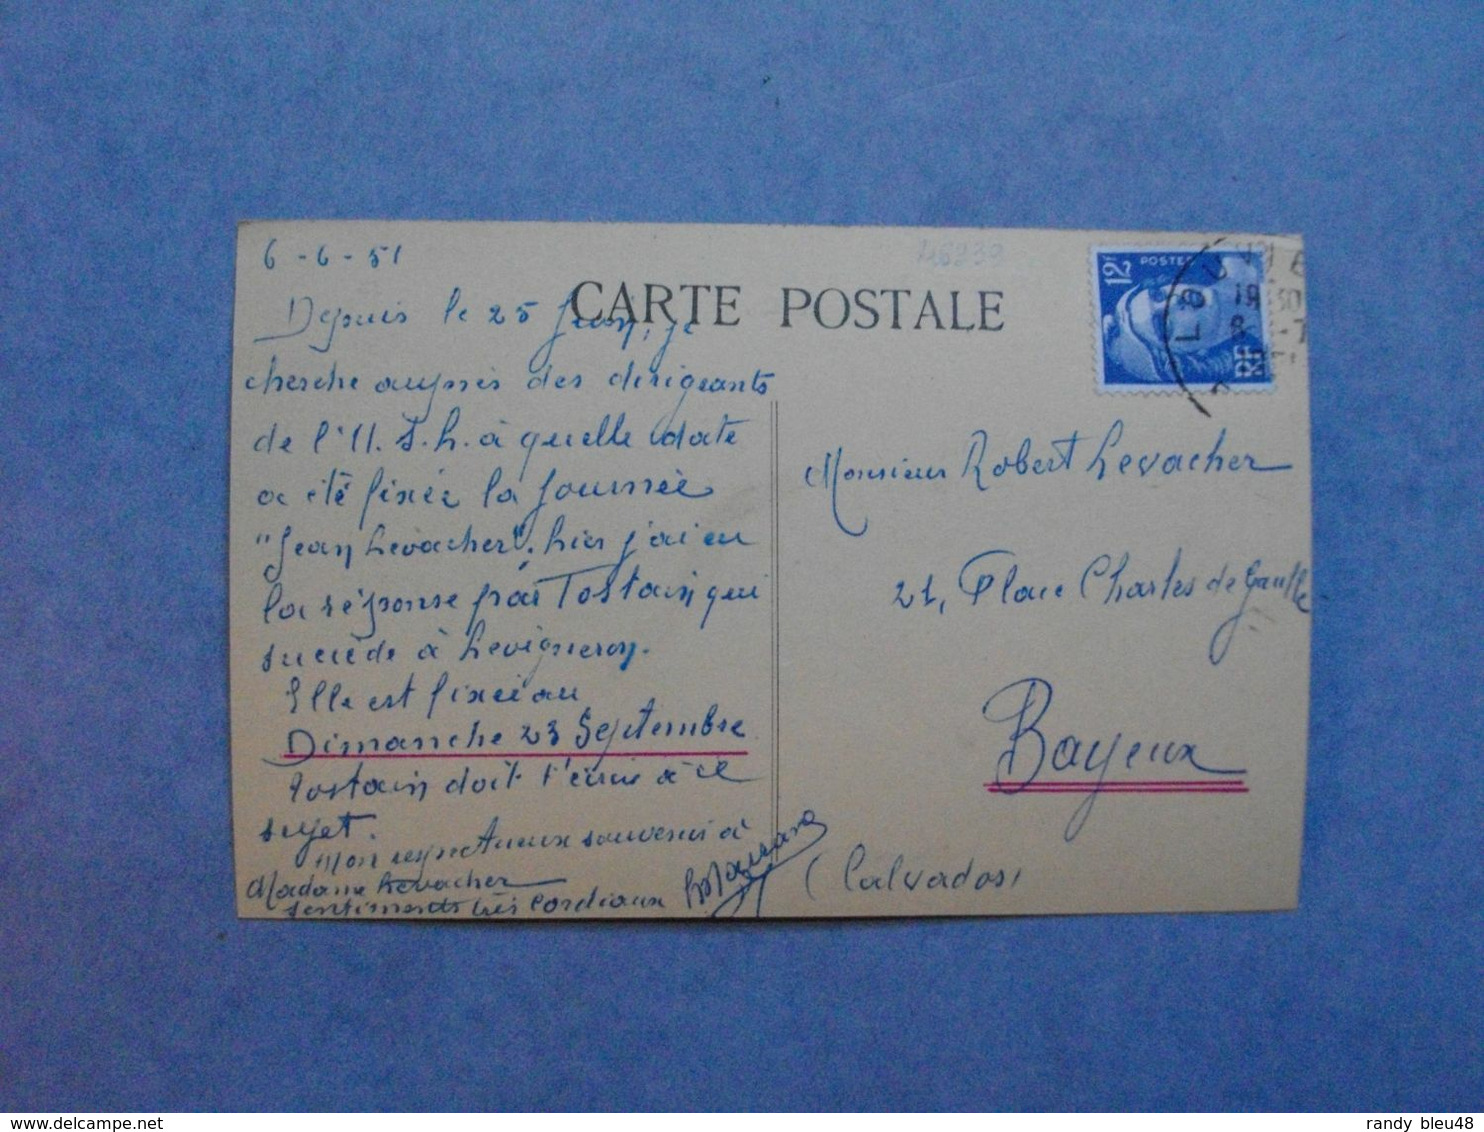 6-6-51
CARTE POSTALE
Depuis le 25 Juin, je
cherche auprès des dirigeants
de l'U.S.L. à quelle date
a été fixée la Journée
"Jean Levacher". hier j'ai eu
la réponse par Tostain qui
succède à Levigneron.
Elle est fixée au
Dimanche 23 Septembre
Tostain doit t'écrire à ce
sujet.
Mon respectueux souvenir à
Madame Levacher
sentiments très Cordiaux
46839
12F POSTES RF
Monsieur Robert Levacher
21, Place Charles de Gaulle
Bayeux
(Calvados)
randy bleu48